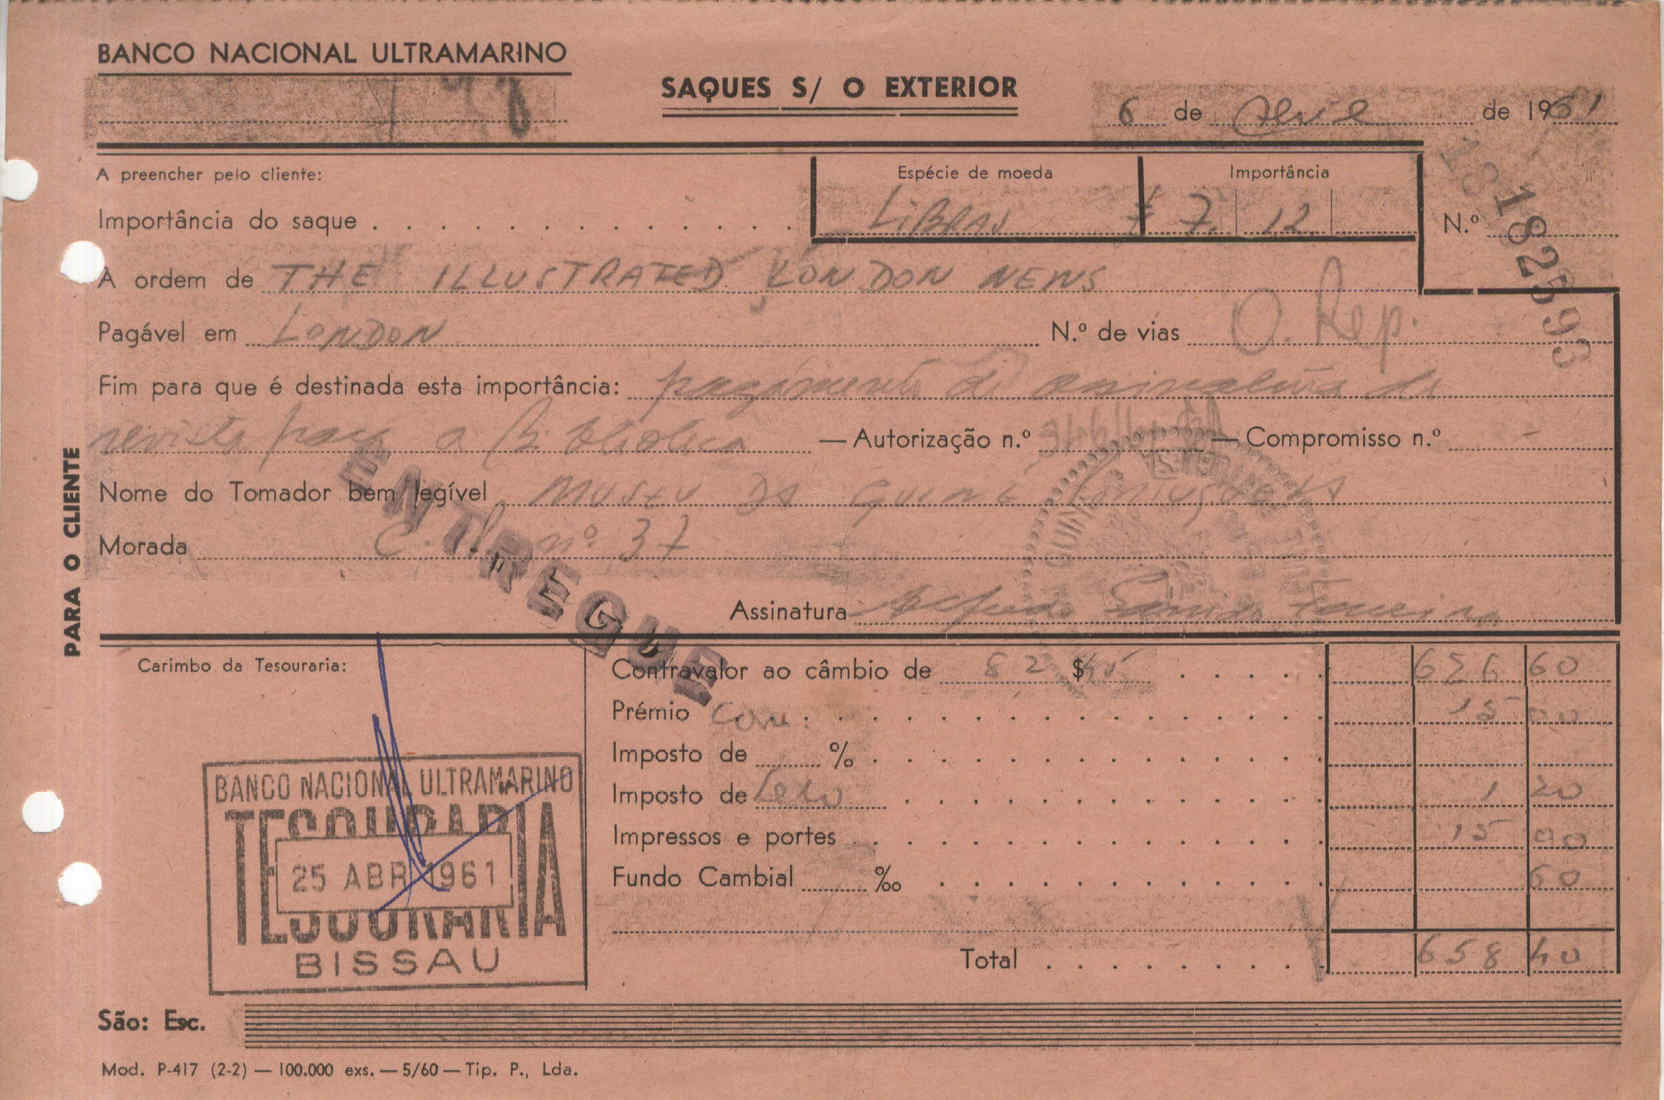 BANCO NACIONAL ULTRAMARINO
SAQUES S/ O EXTERIOR
6 de Abril de 1961
A preencher pelo cliente:
Espécie de moeda
Importância
Importância do saque
LiBRAS £ 7. 12.
N.º 182593
À ordem de THE ILLUSTRATED LONDON NEWS
Pagável em LONDON N.º de vias O. Rep.
Fim para que é destinada esta importância: pagamento de assinatura da
revista para a Biblioteca — Autorização n.º — Compromisso n.º -
Nome do Tomador bem legível MUSEU DA GUINÉ PORTUGUESA
Morada C. P. nº 37
ENTREGUE
PARA O CLIENTE
Assinatura Alfredo
Carimbo da Tesouraria:
Contravalor ao câmbio de 82 $45 626 60
Prémio Com. 15 00
Imposto de %
Imposto de Selo 1 20
Impressos e portes 15 00
Fundo Cambial ‰ 60
Total 658 40
BANCO NACIONAL ULTRAMARINO
TESOURARIA
25 ABR 1961
TESOURARIA
BISSAU
São: Esc.
Mod. P-417 (2-2) — 100.000 exs. — 5/60 — Tip. P., Lda.